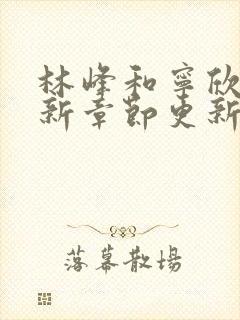 林峰和寧欣
新章節更新
落幕散場